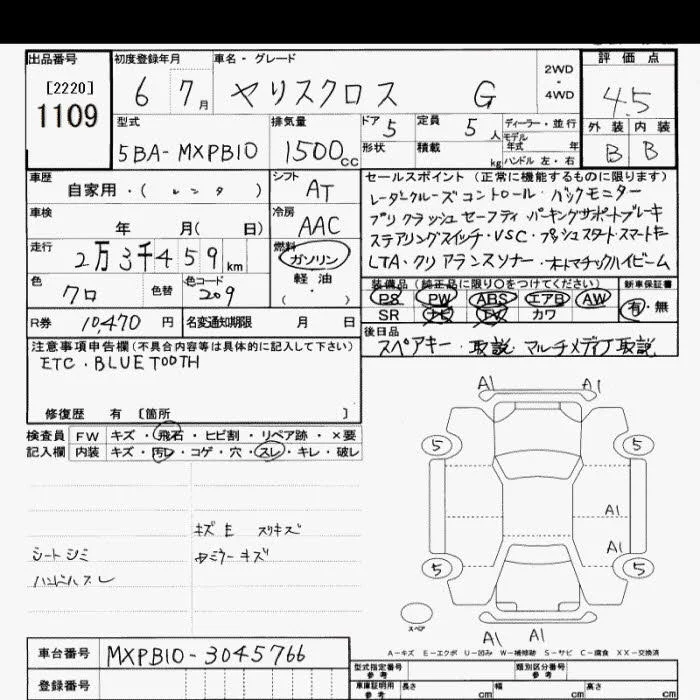 出品番号 初度登録年月 車名・グレード 2WD・4WD 評価点
[2220]
1109
6 7月 ヤリスクロス G 4.5
型式 排気量 ドア 定員 ディーラー・並行 外装 内装
5BA-MXPB10 1500cc 5 5人 モデル年式 年 B B
形状 積載 kg ハンドル 左・右
車歴 自家用・( レンタ ) シフト AT
セールスポイント (正常に機能するものに限ります)
レーダクルーズコントロール・バックモニター
プリクラッシュセーフティ パーキングサポートブレーキ
ステアリングスイッチ・VSC・プッシュスタート・スマートキー
LTA・クリアランスソナー・オートマチックハイビーム
車検 年 月( 日) 冷房 AAC
走行 2万3千459km 燃料 ガソリン 軽油 ( ・ )
色 クロ 色替 色コード 209
装備品 (純正品に限り○をつけてください) 新車保証書
PS PW ABS エアB AW 有・無
SR ナビ TV カワ
R券 10,470円 名変通知期限 月 日
後日品
スペアキー・取説 マルチメディア取説
注意事項申告欄(不具合内容等は具体的に記入して下さい)
ETC・BLUETOOTH
修復歴 有 [箇所 ]
検査員 FW キズ・飛石・ヒビ割・リペア跡・×要
記入欄 内装 キズ・汚レ・コゲ・穴・スレ・キレ・破レ
シートシミ
ハンドルスレ
キズE スリキズ
A1 A1
5 5
A1
A1
5 5
スペア
A1 A1
A-キズ E-エクボ U-凹み W-補修跡 S-サビ C-腐食 XX-交換済
車台番号 MXPB10-3045766
型式指定番号 参考 類別区分番号 参考
登録番号
車庫証明用 参考 長さ cm 幅 cm 高さ cm